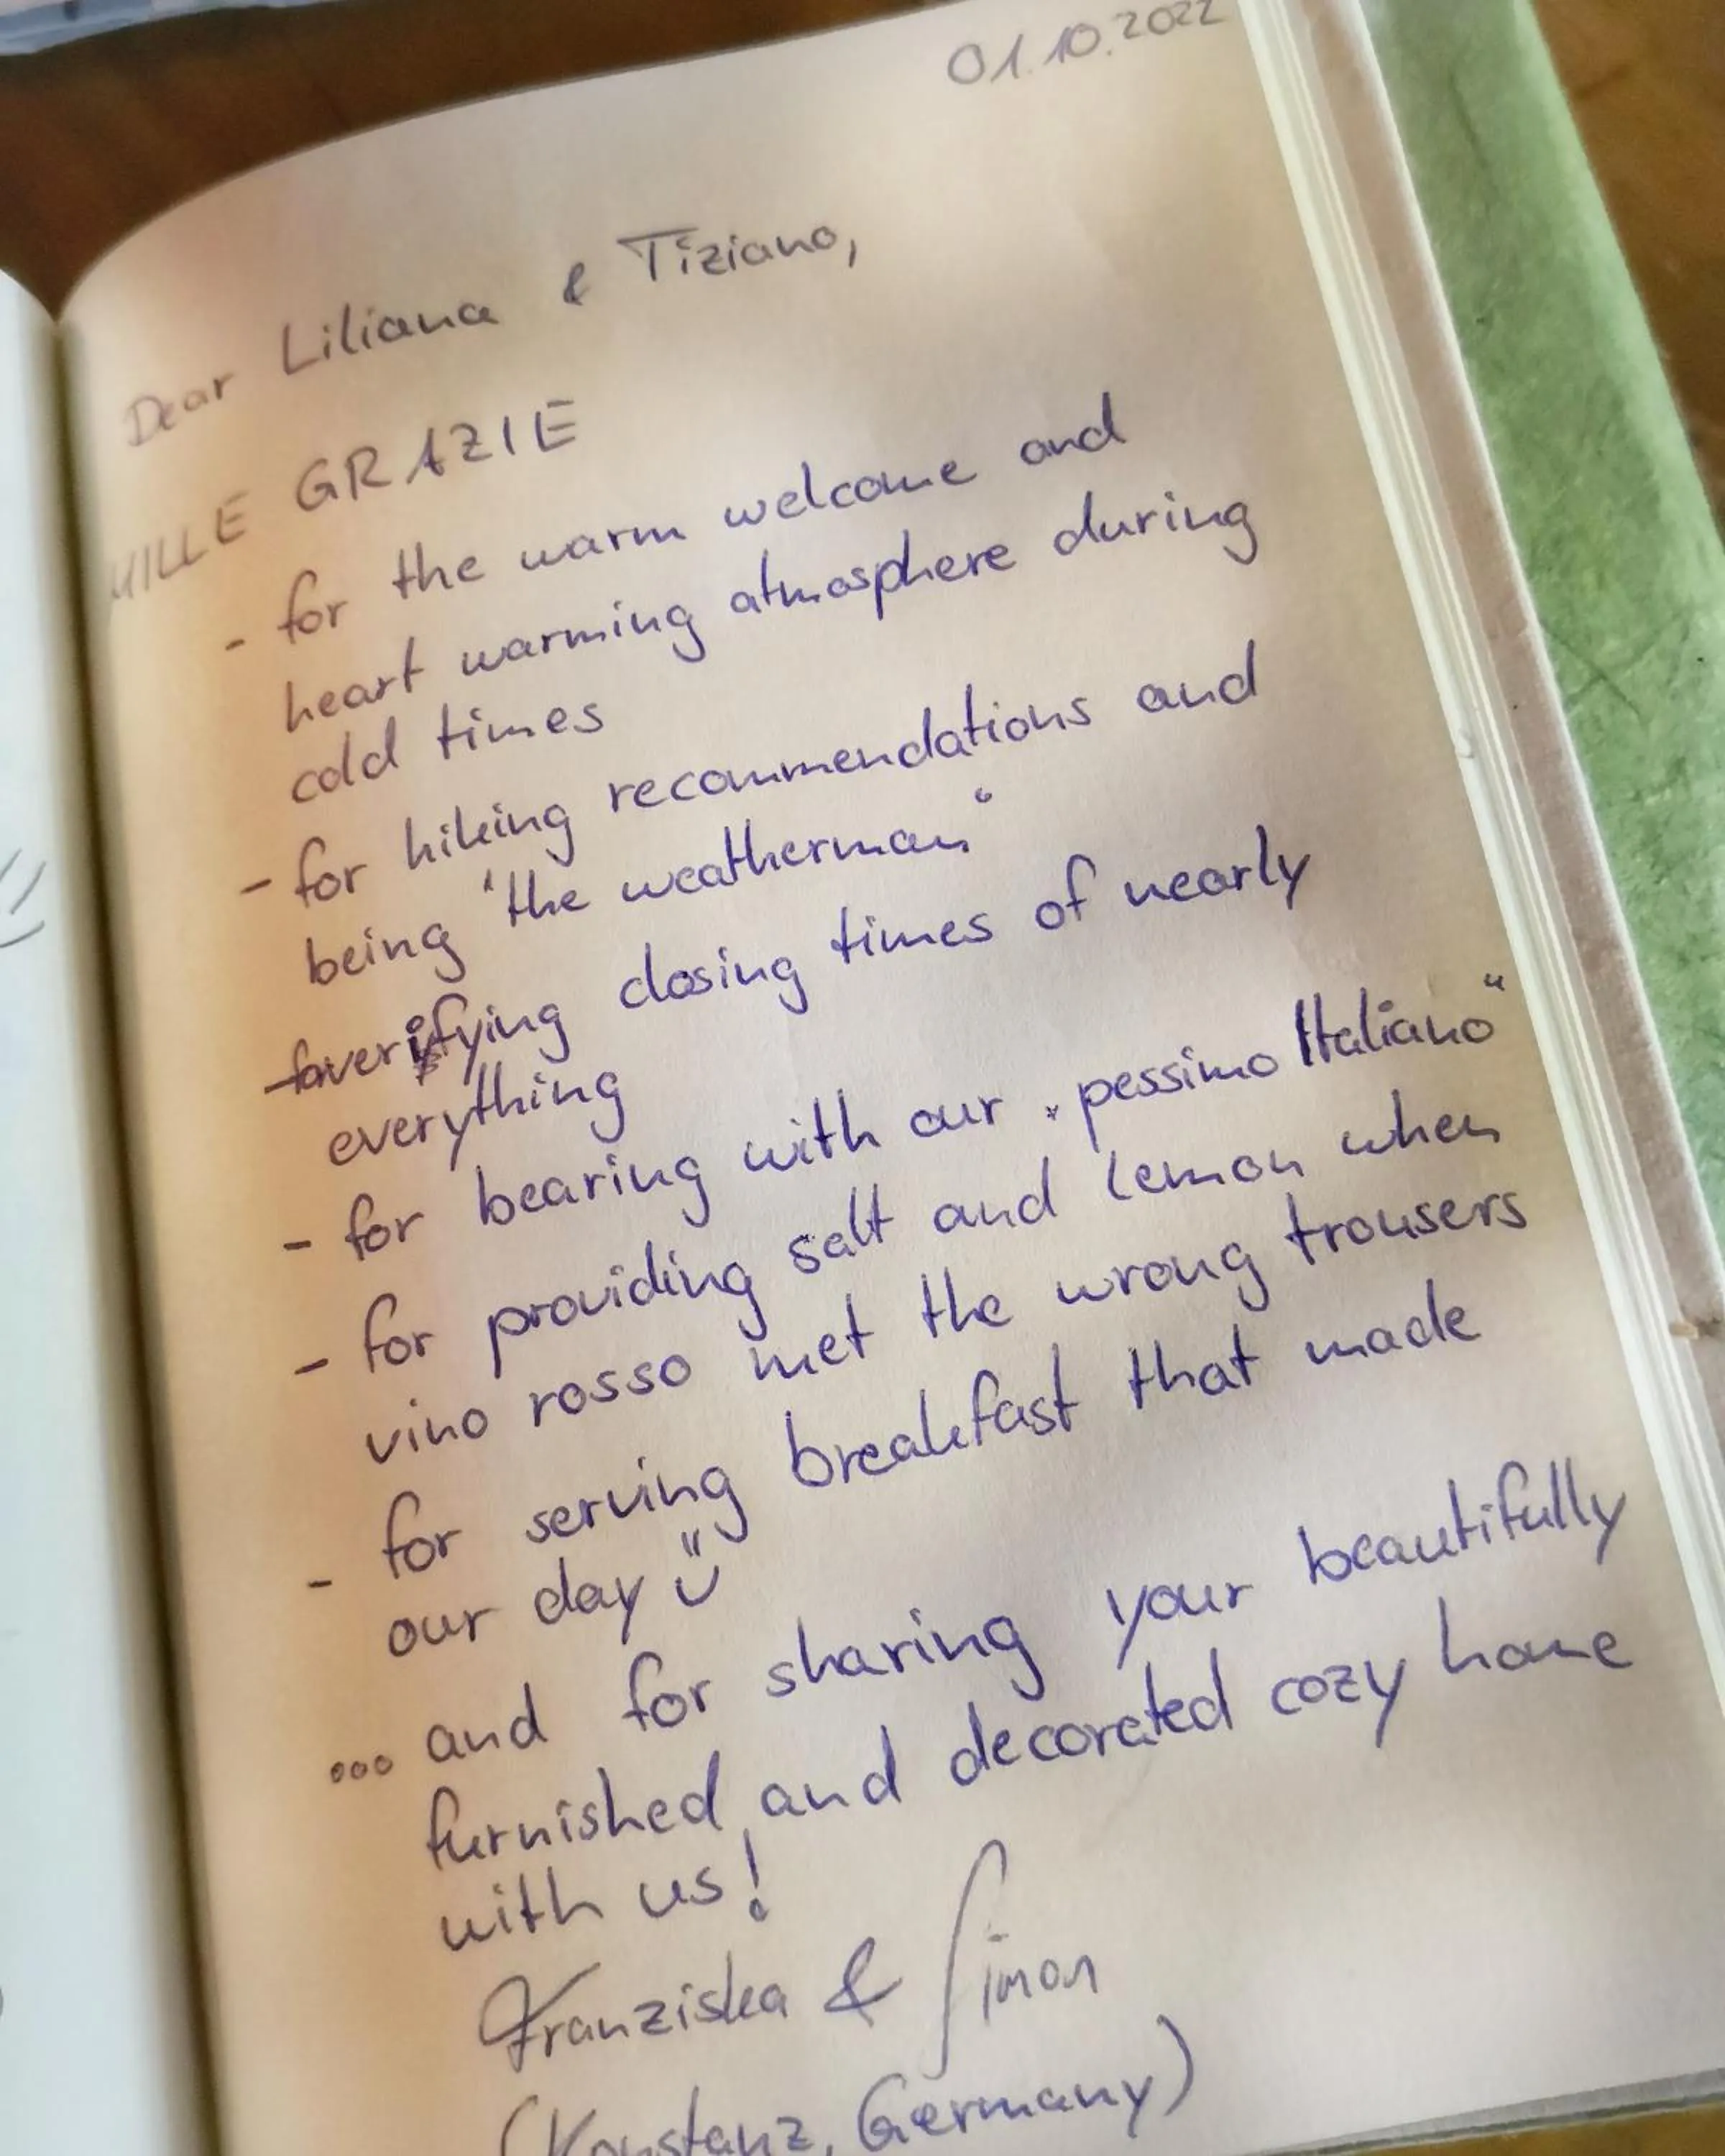 01.10.2022
Dear Liliana & Tiziano,
MILLE GRAZIE
- for the warm welcome and
heart warming atmosphere during
cold times
- for hiking recommendations and
being "the weatherman"
- for verifying closing times of nearly
everything
- for bearing with our "pessimo Italiano"
- for providing salt and lemon when
vino rosso met the wrong trousers
- for serving breakfast that made
our day
... and for sharing your beautifully
furnished and decorated cozy home
with us!
Franziska & Simon
(Konstanz, Germany)